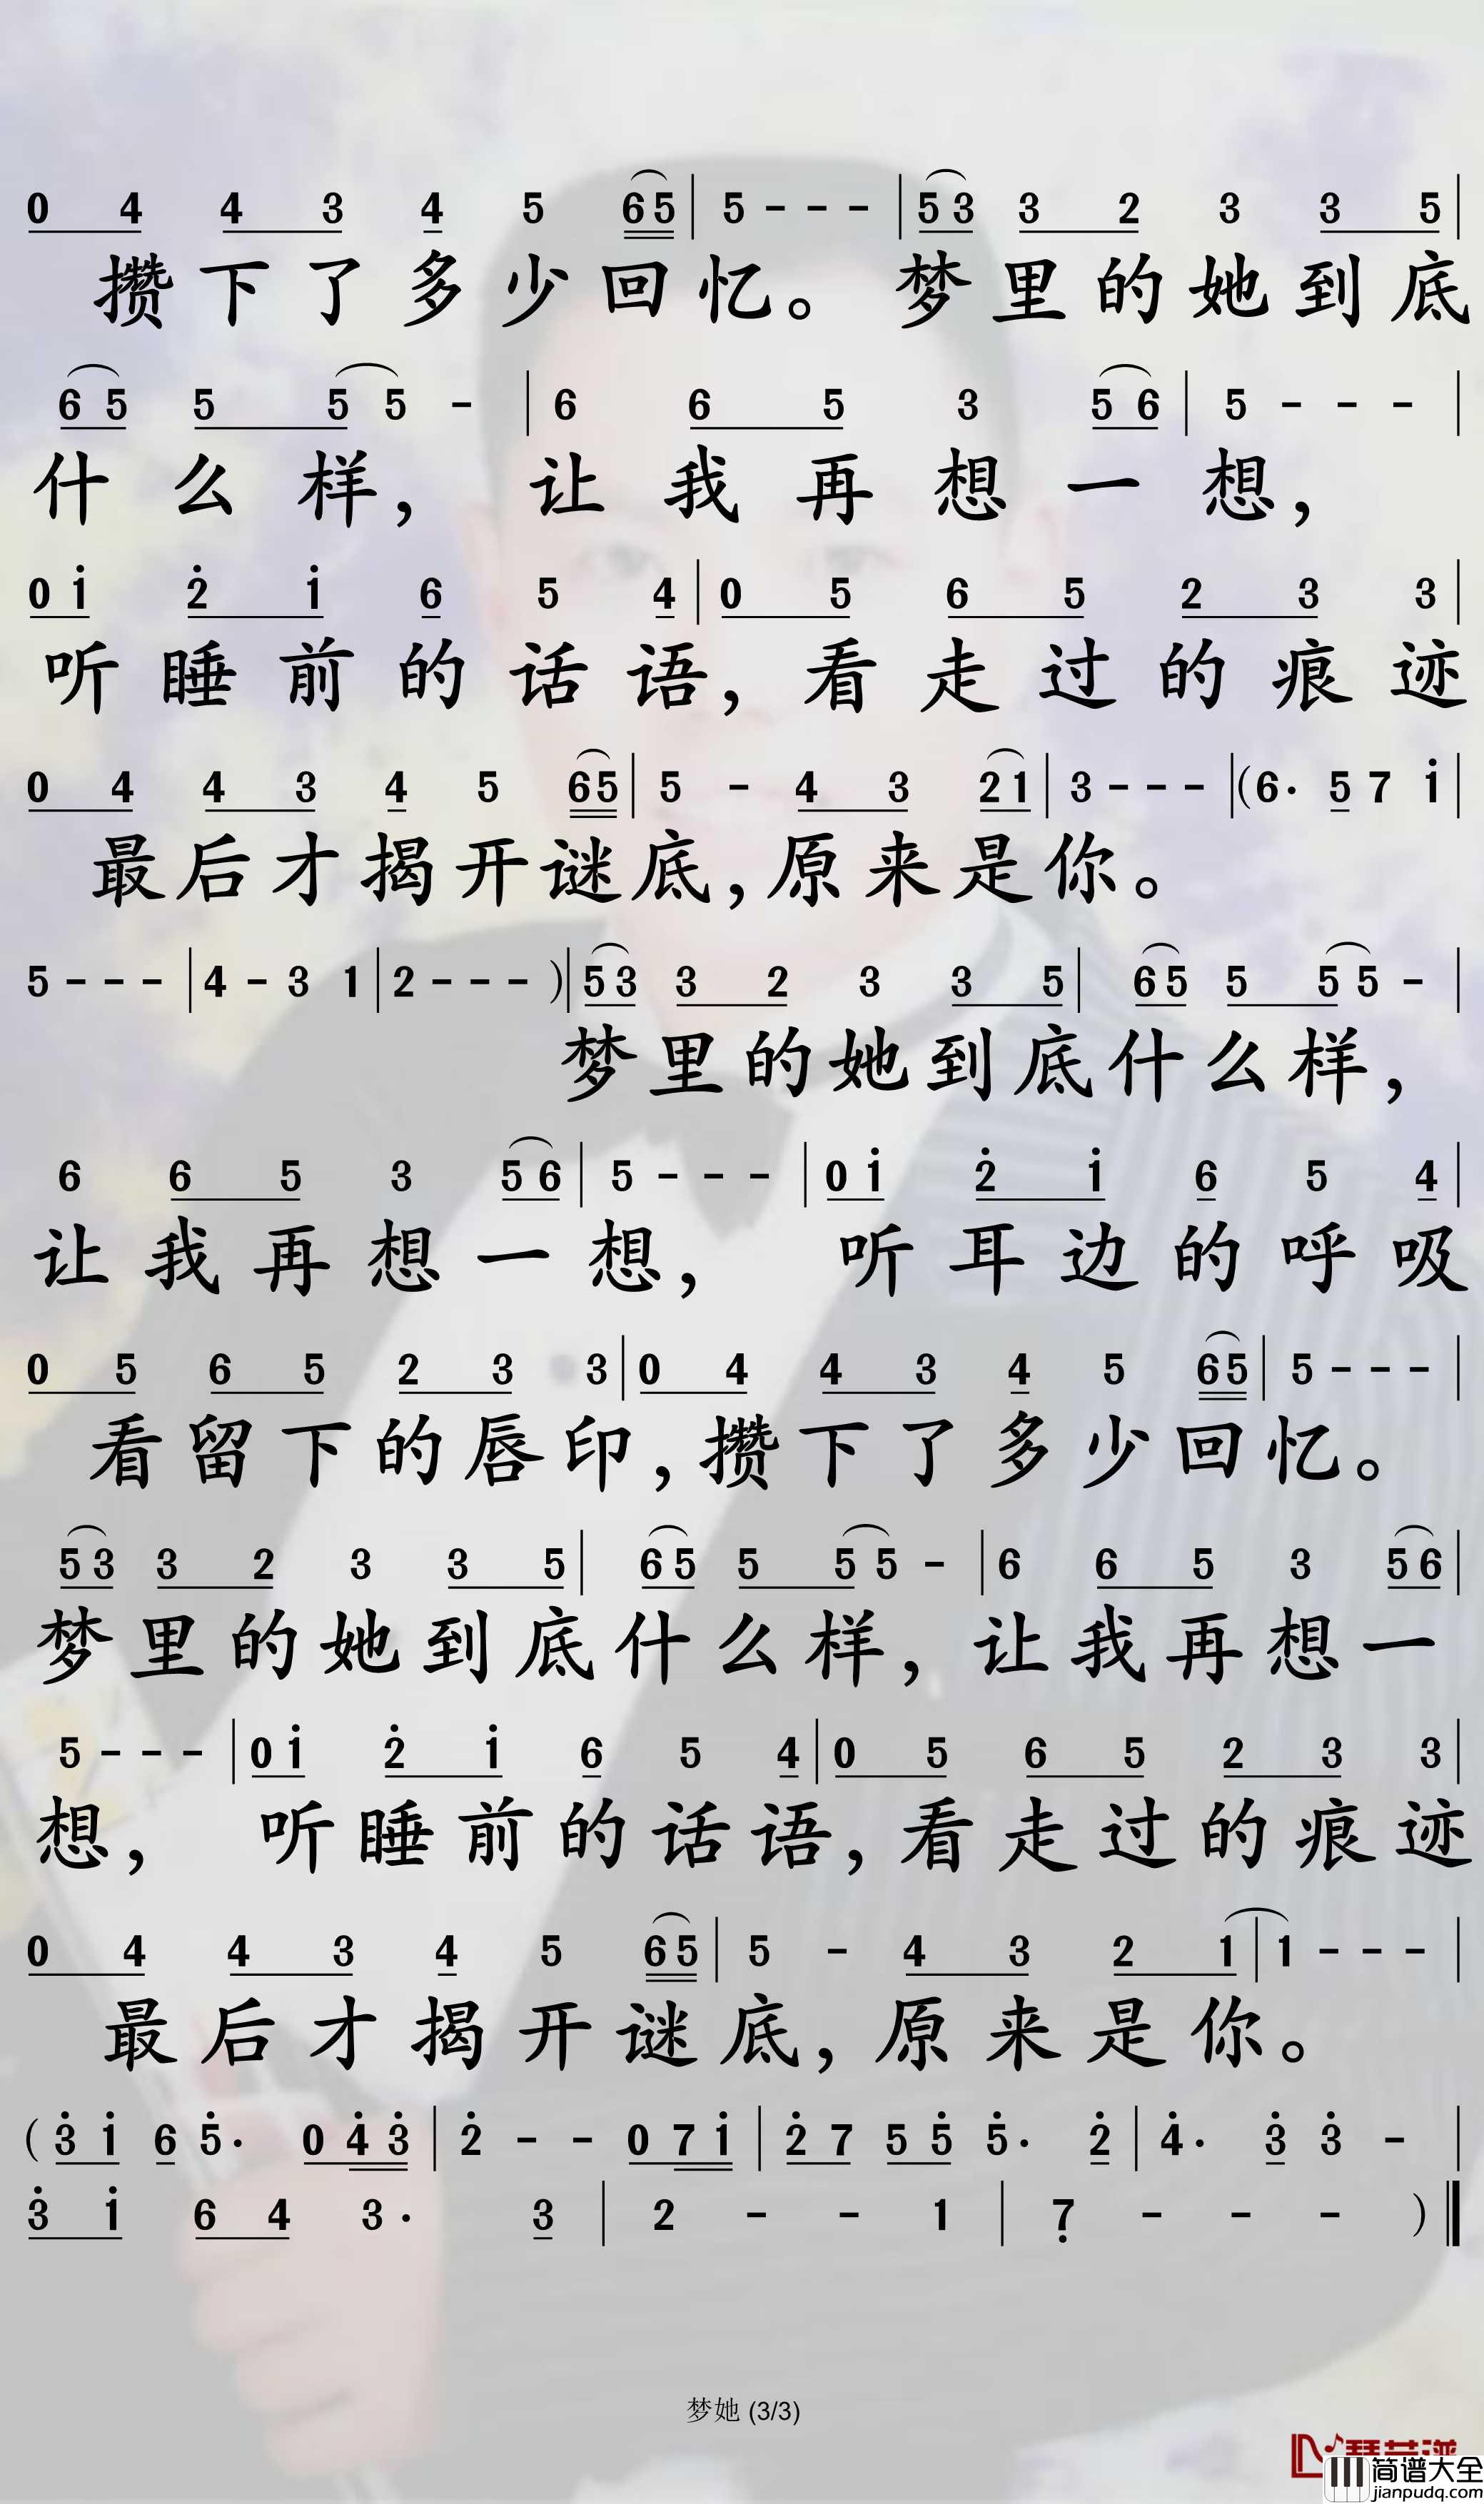 0 4 4 3 4 5 6 5 | 5 - - - | 5 3 3 2 3 3 5 |
攒下了多少回忆。梦里的她到底
6 5 5 5 5 - | 6 6 5 3 5 6 | 5 - - - |
什么样，让我再想一想，
0 i 2 i 6 5 4 | 0 5 6 5 2 3 3 |
听睡前的话语，看走过的痕迹
0 4 4 3 4 5 6 5 | 5 - 4 3 2 1 | 3 - - - | (6· 5 7 i |
最后才揭开谜底，原来是你。
5 - - - | 4 - 3 1 | 2 - - - ) | 5 3 3 2 3 3 5 | 6 5 5 5 5 - |
梦里的她到底什么样，
6 6 5 3 5 6 | 5 - - - | 0 i 2 i 6 5 4 |
让我再想一想，听耳边的呼吸
0 5 6 5 2 3 3 | 0 4 4 3 4 5 6 5 | 5 - - - |
看留下的唇印，攒下了多少回忆。
5 3 3 2 3 3 5 | 6 5 5 5 5 - | 6 6 5 3 5 6 |
梦里的她到底什么样，让我再想一
5 - - - | 0 i 2 i 6 5 4 | 0 5 6 5 2 3 3 |
想，听睡前的话语，看走过的痕迹
0 4 4 3 4 5 6 5 | 5 - 4 3 2 1 | 1 - - - |
最后才揭开谜底，原来是你。
( 3 i 6 5· 0 4 3 | 2 - - 0 7 i | 2 7 5 5 5· 2 | 4· 3 3 - |
3 i 6 4 3· 3 | 2 - - 1 | 7 - - - )
梦她 (3/3)
简谱大全
jianpudq.com